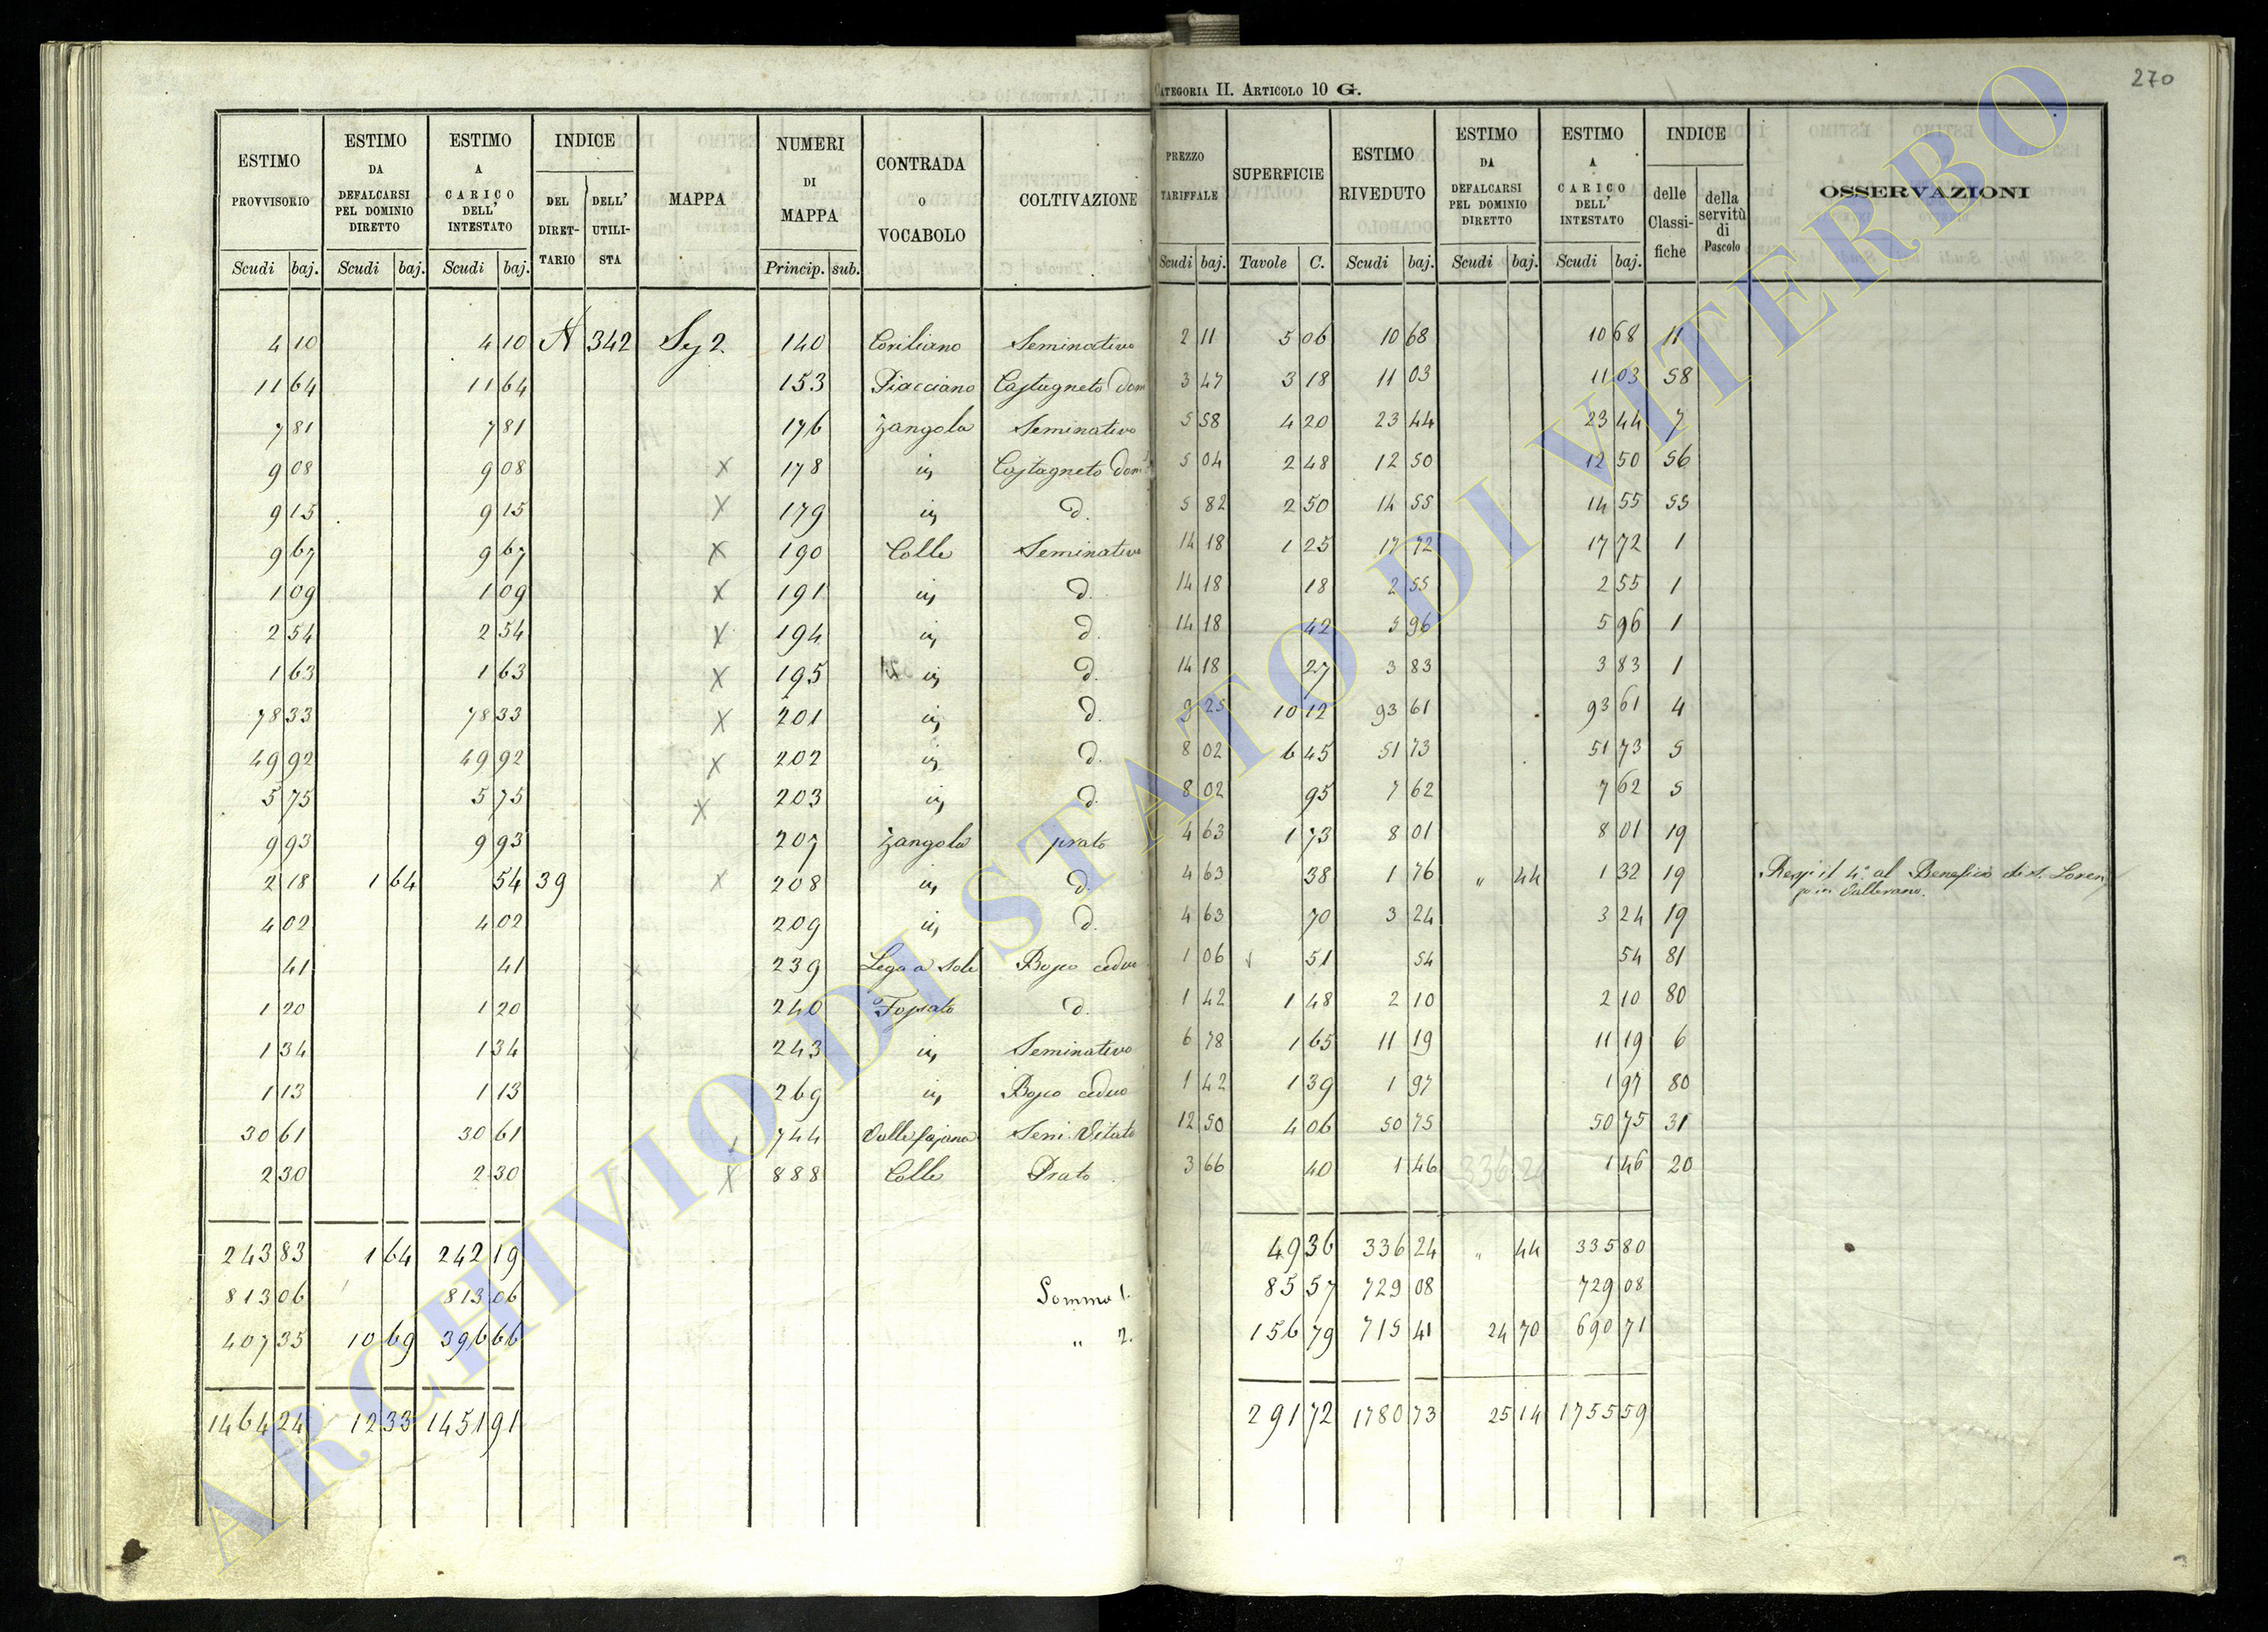 270
CATEGORIA II. ARTICOLO 10 G.
ESTIMO PROVVISORIO Scudi baj. ESTIMO DA DEFALCARSI PEL DOMINIO DIRETTO Scudi baj. ESTIMO A CARICO DELL' INTESTATO Scudi baj. INDICE DEL DIRETTARIO DELL' UTILISTA MAPPA NUMERI DI MAPPA Princip. sub. CONTRADA O VOCABOLO COLTIVAZIONE PREZZO TARIFFALE Scudi baj. SUPERFICIE Tavole C. ESTIMO RIVEDUTO Scudi baj. ESTIMO DA DEFALCARSI PEL DOMINIO DIRETTO Scudi baj. ESTIMO A CARICO DELL' INTESTATO Scudi baj. INDICE delle Classifiche della servitù di Pascolo OSSERVAZIONI
4 10 4 10 342 140 Coriliano Seminativo 2 11 5 06 10 68 10 68 11
11 64 11 64 153 Piacciano Castagneto dom 3 47 3 18 11 03 11 03 58
7 81 7 81 176 Zangola Seminativo 5 58 4 20 23 44 23 44 7
9 08 9 08 X 178 Castagneto dom 5 04 2 48 12 50 12 50 56
9 15 9 15 X 179 d. 5 82 2 50 14 55 14 55 55
9 67 9 67 X 190 Colle Seminativo 14 18 1 25 17 72 17 72 1
1 09 1 09 X 191 d. 14 18 18 2 55 2 55 1
2 54 2 54 X 194 d. 14 18 42 5 96 5 96 1
1 63 1 63 X 195 d. 14 18 27 3 83 3 83 1
78 33 78 33 X 201 d. 9 25 10 12 93 61 93 61 4
49 92 49 92 X 202 d. 8 02 6 45 51 73 51 73 5
5 75 5 75 X 203 d. 8 02 95 7 62 7 62 5
9 93 9 93 207 Zangola prato 4 63 1 73 8 01 8 01 19
2 18 1 64 54 39 X 208 d. 4 63 38 1 76 " 44 1 32 19 Resp: il 4° al Beneficio di S. Loren
zo in Vallerano.
4 02 4 02 209 d. 4 63 70 3 24 3 24 19
41 41 X 239 Lega a Sole Bosco ceduo 1 06 51 54 54 81
1 20 1 20 X 240 Fossato d. 1 42 1 48 2 10 2 10 80
1 34 1 34 X 243 Seminativo 6 78 1 65 11 19 11 19 6
1 13 1 13 269 Bosco ceduo 1 42 1 39 1 97 1 97 80
30 61 30 61 744 Valle fajana Sem. Vitato 12 50 4 06 50 75 50 75 31
2 30 2 30 X 888 Colle Prato 3 66 40 1 46 336 24 1 46 20
243 83 1 64 242 19 49 36 336 24 " 44 335 80
813 06 813 06 Somma 1. 85 57 729 08 729 08
407 35 10 69 396 66 " 2. 156 79 715 41 24 70 690 71
1464 24 12 33 1451 91 291 72 1780 73 25 14 1755 59
ARCHIVIO DI STATO DI VITERBO